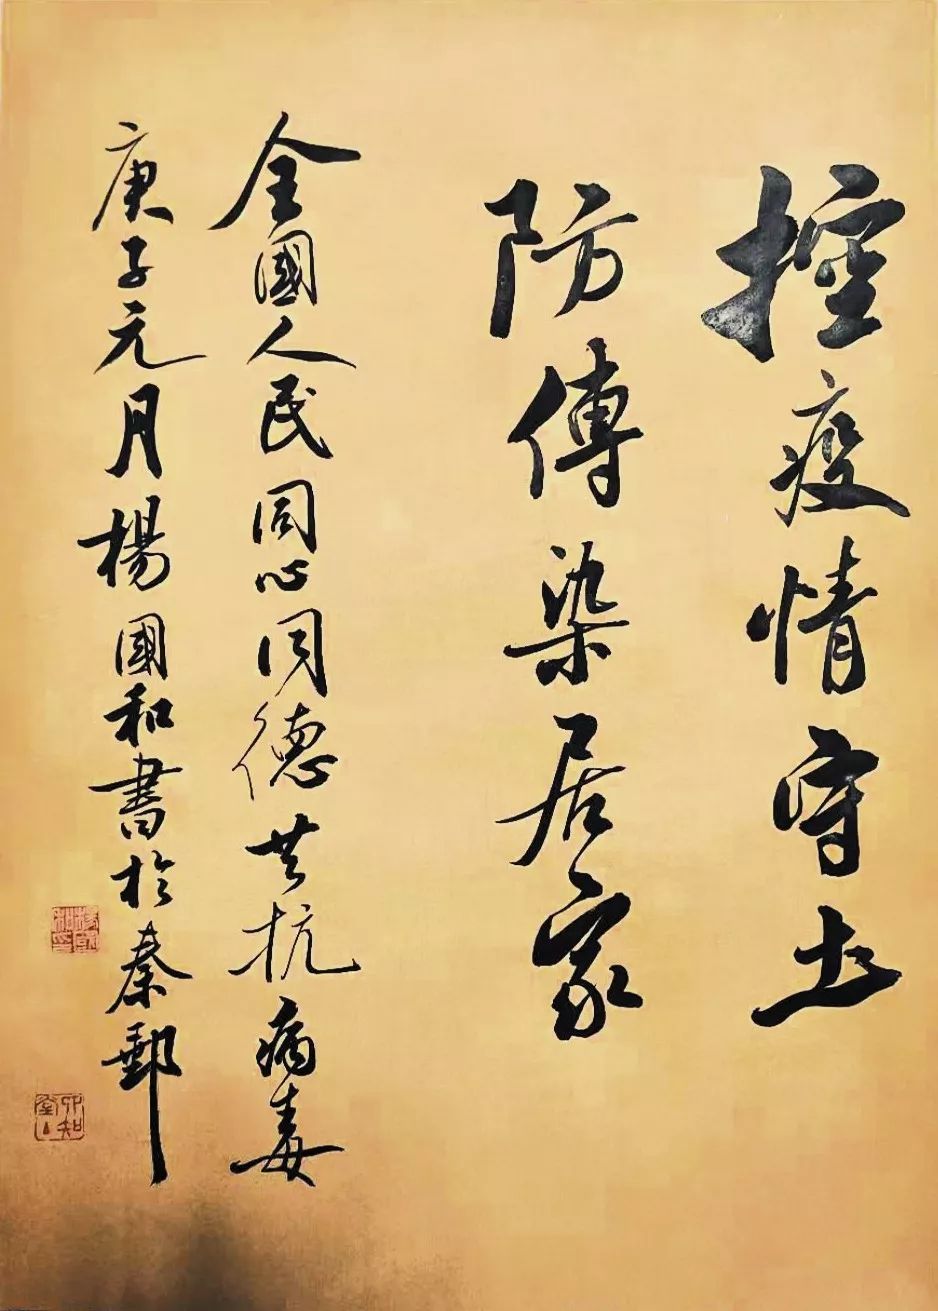 控疫情守土
防傳染居家
全國人民同心同德共抗病毒
庚子元月楊國和書於秦郵